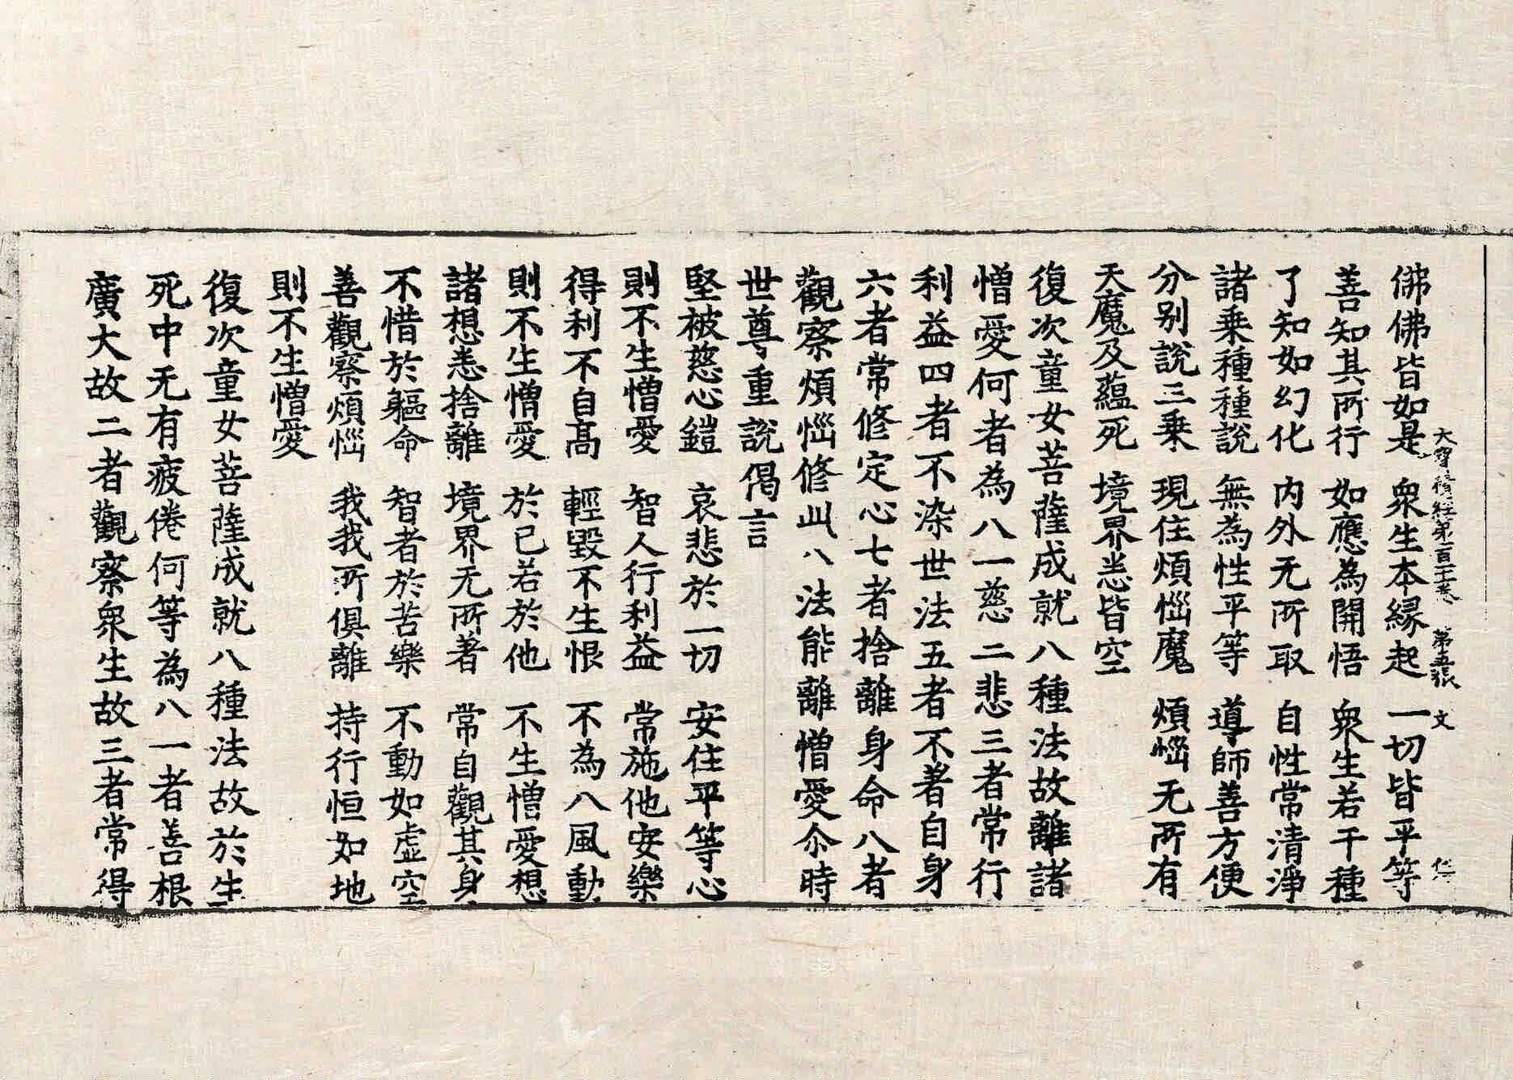 大寶積經第一百十一卷 第五張 文
佛佛皆如是 衆生本縁起 一切皆平等
善知其所行 如應為開悟 衆生若干種
了知如幻化 内外无所取 自性常清淨
諸乗種種說 無為性平等 導師善方便
分別說三乗 現住煩惱魔 煩惱无所有
天魔及蘊死 境界悉皆空
復次童女菩薩成就八種法故離諸
憎愛何者為八一慈二悲三者常行
利益四者不染世法五者不著自身
六者常修定心七者捨離身命八者
觀察煩惱修此八法能離憎愛尒時
世尊重說偈言
堅被慈心鎧 哀悲於一切 安住平等心
則不生憎愛 智人行利益 常施他安樂
得利不自高 輕毀不生恨 不為八風動
則不生憎愛 於已若於他 不生憎愛想
諸想悉捨離 境界无所著 常自觀其身
不惜於軀命 智者於苦樂 不動如虛空
善觀察煩惱 我我所俱離 持行恒如地
則不生憎愛
復次童女菩薩成就八種法故於生
死中无有疲倦何等為八一者善根
廣大故二者觀察衆生故三者常得